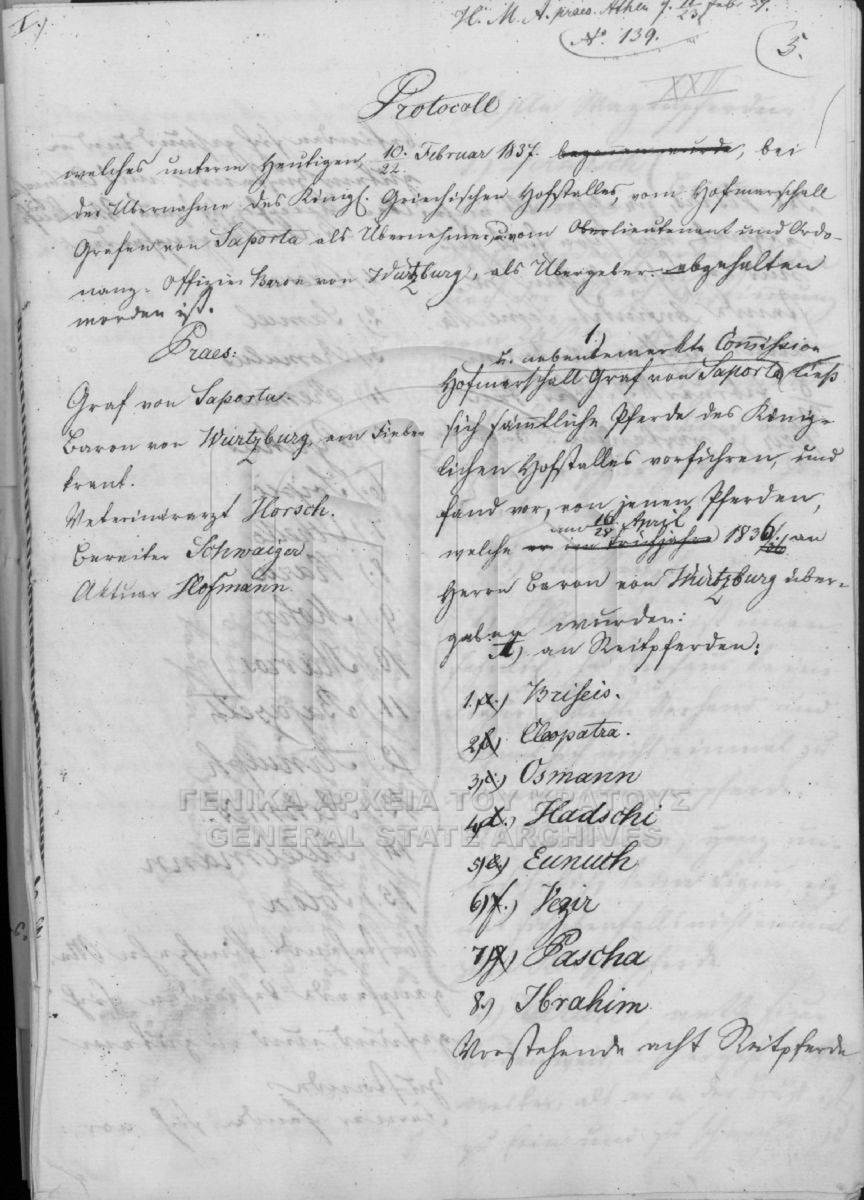 I.)
H. M. A. praes. Athen d. 11/23 Febr. 37.
No. 139.
5.
XXII
Protocoll
welches unterm Heutigen 10./22. Februar 1837. begonnen wurde, bei
der Übernahme des Königl. Griechischen Hofstalles, vom Hofmarschall
Grafen von Saporta als Übernehmer, u. vom Oberlieutenant und Ordo-
nanz-Offizier Baron von Würtzburg, als Übergeber abgehalten
worden ist.
Praes:
Graf von Saporta.
Baron von Würtzburg, am Fieber
krank.
Veterinärarzt Horsch.
Bereiter Schwaiger.
Aktuar Hofmann.
1)
u. nebenbemerkte Comission
Hofmarschall Graf von Saporta ließ
sich sämmtliche Pferde des König-
lichen Hofstalles vorführen, und
fand vor, von jenen Pferden,
am 16/28 April
welche er im Frühjahre 1836, an
Herrn Baron von Würtzburg über-
geben wurden:
A) an Reitpferden:
1.) Briseis.
2) Cleopatra.
3.) Osmann
4) Hadschi
5) Eunuch
6) Vezir
7) Pascha
8.) Ibrahim
Vorstehende acht Reitpferde
ΓΕΝΙΚΑ ΑΡΧΕΙΑ ΤΟΥ ΚΡΑΤΟΥΣ
GENERAL STATE ARCHIVES